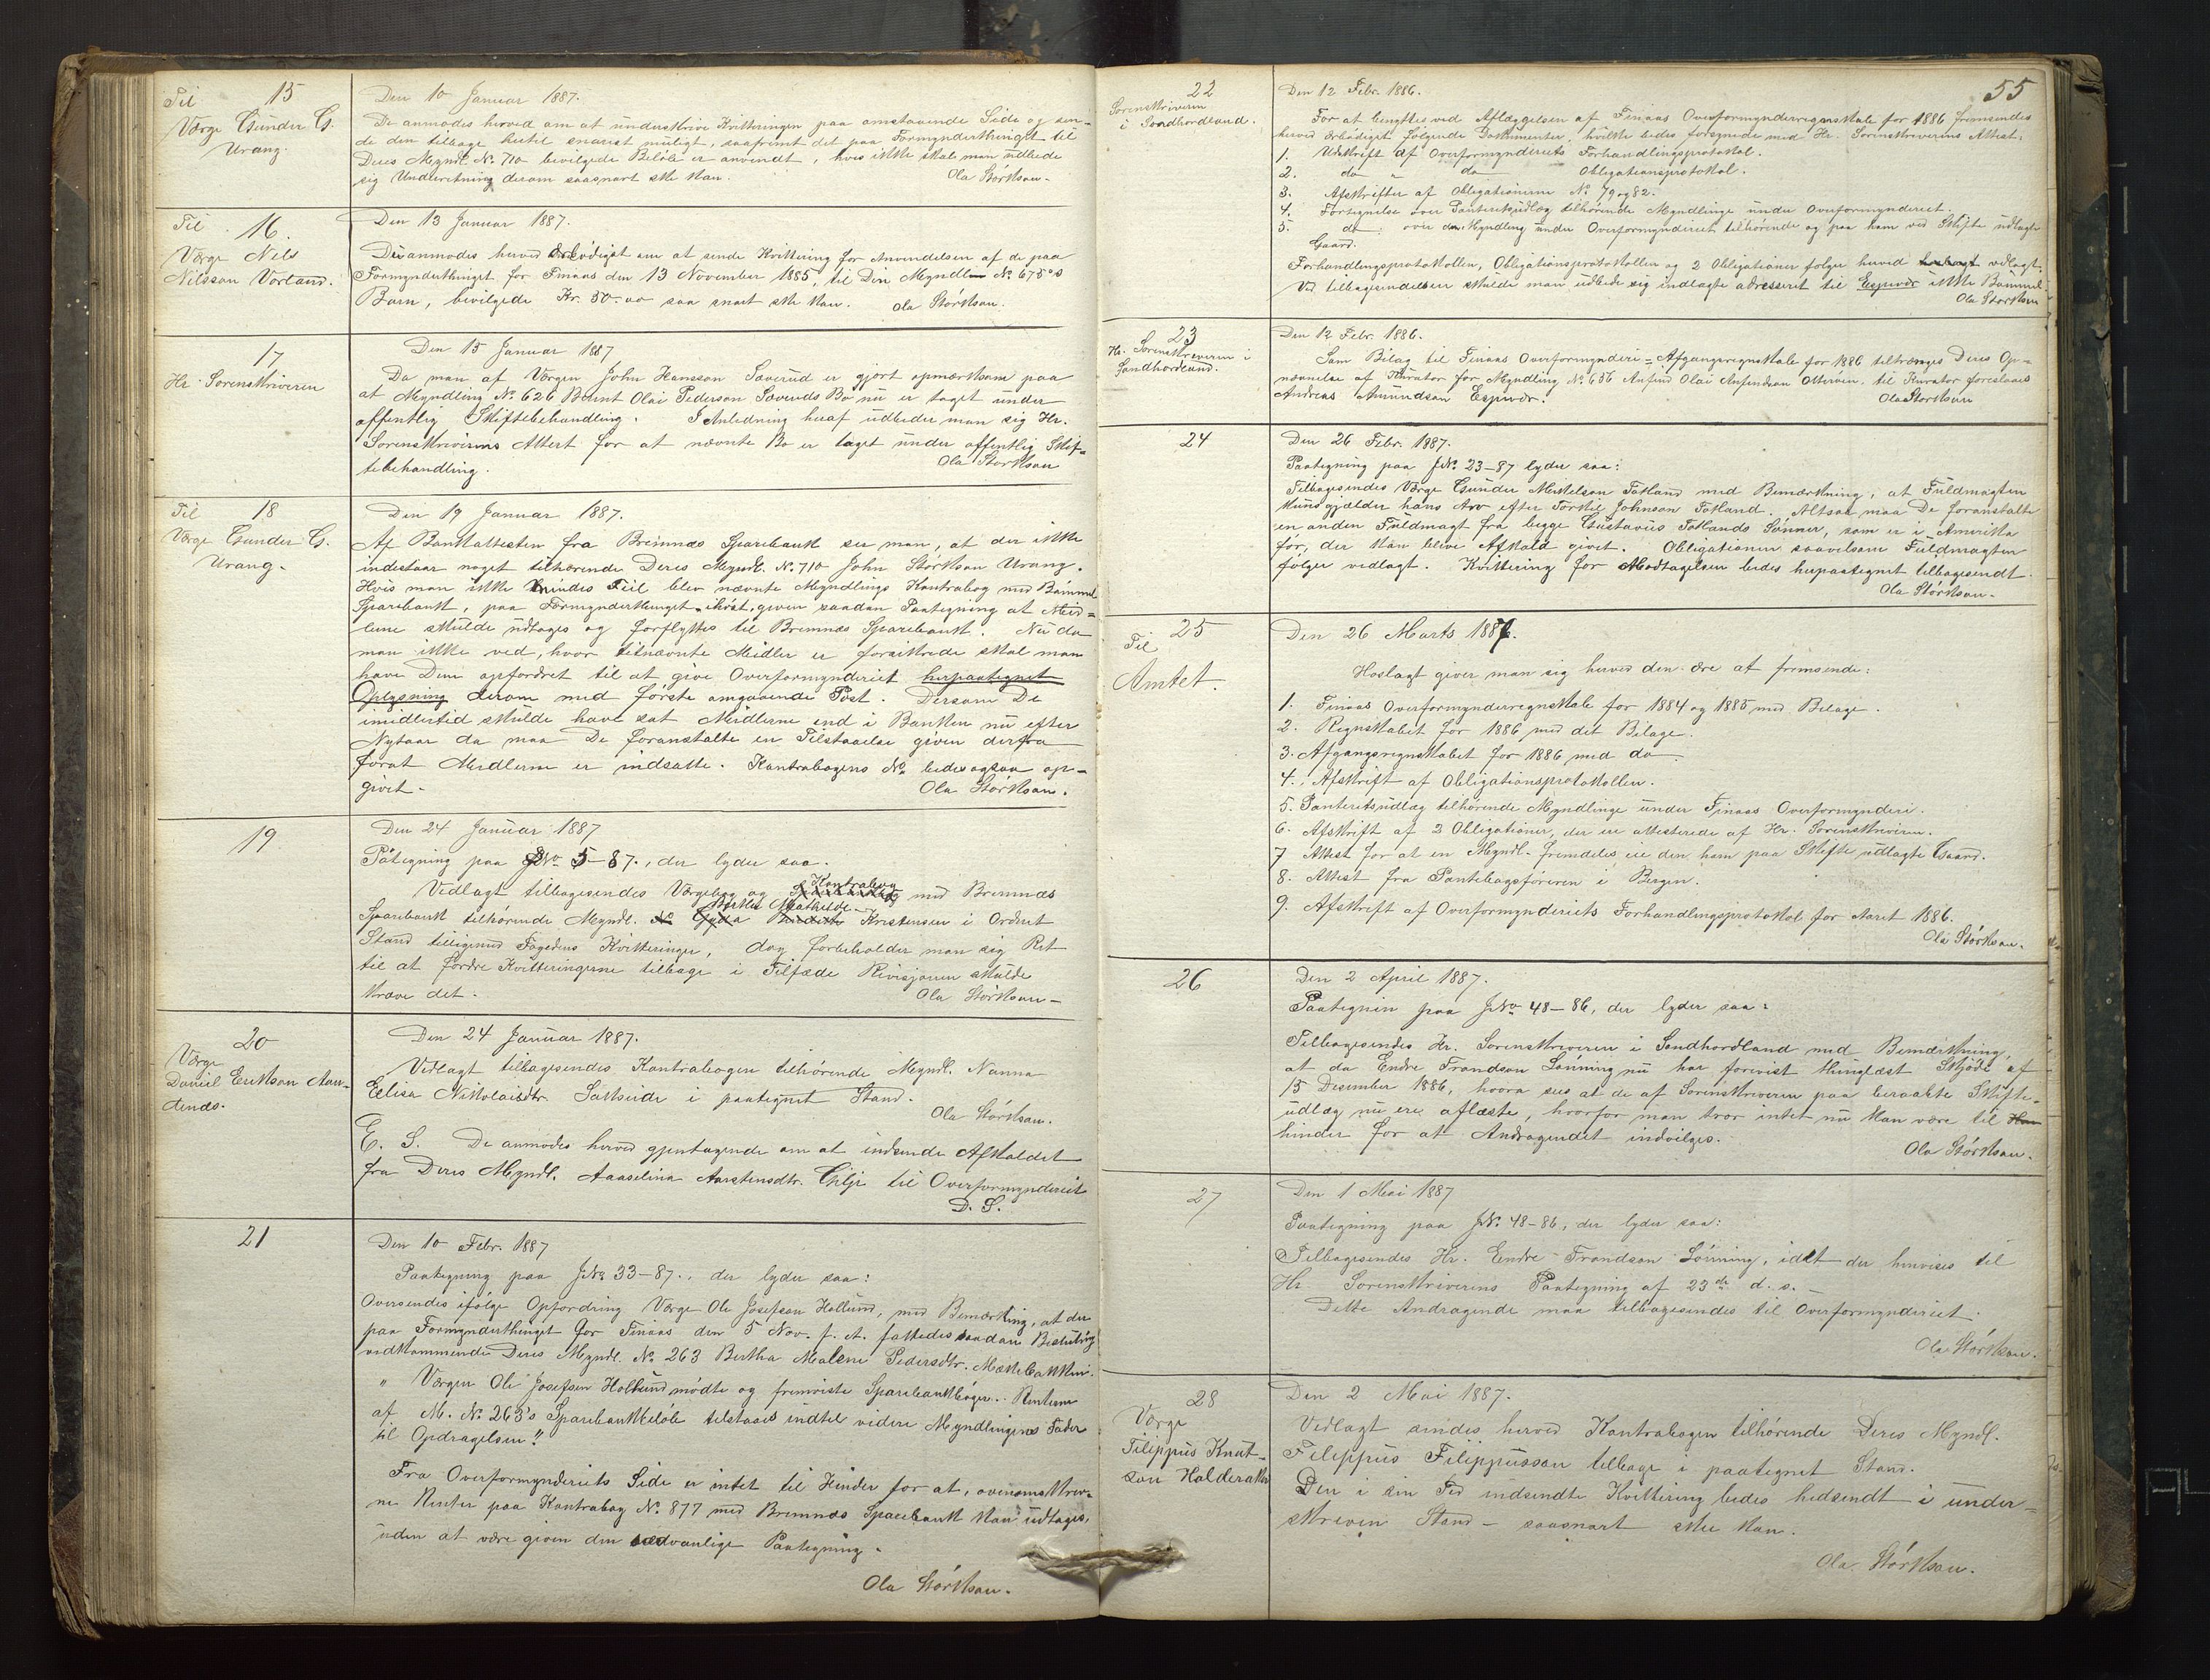 Til 15
Værge Gunder G.
Urang.
Den 10 Januar 1887.
De anmodes herved om at underskrive Kvitteringen paa omstaaende Side og sen-
de den tilbage hertil snarest muligt, saafremt det paa Formynderthinget til
Deres Myndl. No. 710 bevilgede Beløb er anvendt, hvis ikke skal man udbede
sig Underretning derom saasnart ske kan.
Ola Størkson.
Til 16.
Værge Nels
Nilsson Vorland.
Den 13 Januar 1887.
Du anmodes herved ærbødigst om at sende Kvittering for Anvendelsen af de paa
Formynderthinget for Finaas den 13 November 1885, til Din Myndl No 675's
Barn, bevilgede Kr. 50-00 saa snart ske kan.
Ola Størkson.
17
Hr. Sorenskriveren
Den 15 Januar 1887
Da man af Værgen John Hansson Saverud er gjort opmærksom paa
at Myndling No 626 Bernt Olai Pederson Saveruds Bo nu er taget under
offentlig Skiftebehandling. I Anledning heraf udbeder man sig Hr.
Sorenskriverens Attest for at nævnte Bo er taget under offentlig Skif-
tebehandling.
Ola Størkson
Til 18
Værge Gunder G.
Urang.
Den 19 Januar 1887.
Af Bankattesten fra Bremnæs Sparebank ser man, at der ikke
indestaar noget tilhørende Deres Myndl. No. 710 John Størkson Urang.
Hvis man ikke mindes Feil blev nævnte Myndlings Kontrabog med Bømmel
Sparebank, paa Formynderthinget ihøst, given saadan Paategning at Mid-
lene skulde udtages og forflyttes til Bremnæs Sparebank. Nu da
man ikke ved, hvor titnævnte Midler er forsikrede skal man
have Dem opfordret til at give Overformynderiet herpaategnet
Oplysning derom med første omgaaende Post. Dersom De
imidlertid skulde have sat Midlerne ind i Banken nu efter
Nytaar da maa De foranstalte en Tilstaaelse given derfra
forat Midlerne er indsatte. Kontrabogens No. bedes ogsaa op-
givet.
Ola Størkson.
19
Den 24 Januar 1887
Påtegning paa JNo 5-87., der lyder saa.
Vedlagt tilbagesendes Værgebog og Kontrabog med Bremnæs
Sparebank tilhørende Myndl. Mathilde Kristensen i Ordnet
Stand tilligemed Fogedens Kvitteringer, dog forbeholder man sig Ret
til at fordre Kvitteringerne tilbage i Tilfæde Revisjonen skulde
kræve det.
Ola Størkson-
20
Værge
Daniel Erikson Aan-
denæs.
Den 24 Januar 1887.
Vedlagt tilbagesendes Kontrabogen tilhørende Myndl. Nanna
Elisa Nikolaisdtr. i paategnet Stand.
Ola Størkson.
E. S. De anmodes herved gjentagende om at indsende Afkaldet
fra Deres Myndl. Aaaselina Aarstensdtr. Gilje til Overformynderiet
D. S.
21
Den 10 Febr. 1887
Paategning paa JNo 33-87., der lyder saa:
Oversendes ifølge Opfordring Værge Ole Josefson Hollund, med Bemærkning, at der
paa Formynderthinget for Finaas den 5 Nov. f. A. fattedes saadan Beslutning
vedkommende Deres Myndl. No 263 Bertha Malene Pedersdtr.
" Værgen Ole Josefsen Hollund mødte og fremviste Sparebankbogen. Renterne
af M. No 263's Sparebankbeløb tilstaaes indtil videre Myndlingens Fader
til Opdragelsen."
Fra Overformynderiets Side er intet til Hinder for at, ovenomskrev-
ne Renter paa Kontrabog No. 877 med Bremnæs Sparebank kan udtages,
uden at være given den sædvanlige Paategning.
Ola Størkson.
55
22
Sorenskriveren
i Søndhordland.
Den 12 Febr. 1886.
For at benyttes ved Aflæggelsen af Finaas Overformynderregnskab for 1886 fremsendes
herved ærbødigst følgende Dokumenter, hvilke bedes forsynede med Hr. Sorenskriverens Attest:
1. Udskrift af Overformynderiets Forhandlingsprotokol.
2. do " do Obligationsprotokol.
3. Afskrifter af Obligationerne No 79 og 82.
4. Fortegnelse over Panteretsudlæg tilhørende Myndlinge under Overformynderiet.
5. do: over den Myndling under Overformynderiet tilhørende og paa ham ved Skifte udlagte
Gaard.
Forhandlingsprotokollen, Obligationsprotokollen og 2 Obligationer følger herved vedlagt.
Ved tilbagesendelsen skulde man udbede sig indlagte adresseret til Espevær ikke Bømmel.
Ola Størkson
23
Hr. Sorenskriveren i
Søndhordland.
Den 12 Febr. 1886.
Som Bilag til Finaas Overformynderi=Afgangsregnskab for 1886 tiltrænges Deres Op-
nævnelse af Kurator for Myndling No. 656 Anfind Olai Anfindson Otterøen, til Kurator foreslaaes
Andreas Amundson Espevær.
Ola Størkson
24
Den 26 Febr. 1887.
Paategning paa JNo. 23-87 lyder saa:
Tilbagesendes Værge Gunder Mikkelson Totland med Bemærkning, at Fuldmagten
kun gjælder hans Arv efter Torkil Johnson Totland. Altsaa maa De foranstalte
en anden Fuldmagt fra begge Gustavus Totlands Sønner, som er i Amerika
før, der kan blive Afkald givet. Obligationen saavelsom Fuldmagten
følger vedlagt. Kvittering for Modtagelsen bedes herpaategnet tilbagesendt.
Ola Størkson.
25
Til
Amtet.
Den 26 Marts 1887.
Hoslagt giver man sig herved den ære at fremsende:
1. Finaas Overformynderregnskab for 1884 og 1885 med Bilage.
2. Regnskabet for 1886 med det Bilage.
3. Afgangsregnskabet for 1886 med do
4. Afskrift af Obligationsprotokollen.
5. Panteretsudlæg tilhørende Myndlinge under Finaas Overformynderi.
6. Afskrift af 2 Obligationer, der ere attesterede af Hr. Sorenskriveren.
7 Attest for at en Myndl. fremdeles eie den ham paa Skifte udlagte Gaard.
8. Attest fra Pantebogsføreren i Bergen.
9. Afskrift af Overformynderiets Forhandlingsprotokol for Aaret 1886.
Ola Størkson.
26
Den 2 April 1887.
Paategnin paa JNo 48-86, der lyder saa:
Tilbagesendes Hr. Sorenskriveren i Søndhordland med Bemærkning,
at da Endre Trondson Lønning nu har forevist thinglæst Skjøde af
15 Desember 1886, hvoraf sees at de af Sorenskriveren paa beraabte Skifte-
udlæg nu ere aflæste, hvorfor man tror intet nu kan være til
hinder for at Andragendet indvilges.
Ola Størkson.
27
Den 1 Mai 1887
Paategning paa JNo. 48-86, der lyder saa:
Tilbagesendes Hr. Endre Trondson Lønning, idet der henvises til
Hr. Sorenskriverens Paategning af 23de d. s.
Dette Andragende maa tilbagesendes til Overformynderiet.
Ola Størkson.
28
Værge
Filippus Knut-
son Halderaker
Den 2 Mai 1887.
Vedlagt sendes herved Kontrabogen tilhørende Deres Myndl.
Filippus Filippusson tilbage i paategnet Stand.
Den i sin Tid indsendte Kvittering bedes hidsendt i under-
skreven Stand - saasnart skee kan.
Ola Størkson.